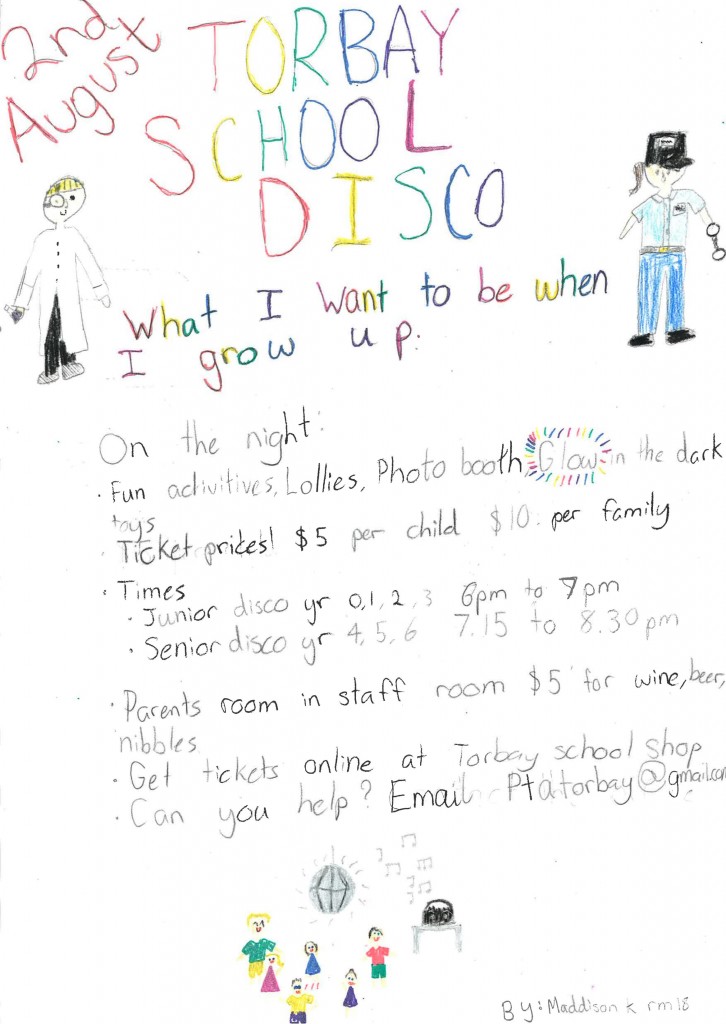 2nd August
TORBAY
SCHOOL
DISCO
What I want to be when
I grow up:
On the night:
· Fun activitives, Lollies, Photo booth, Glow in the dark
toys
· Ticket prices! $5 per child $10 per family
· Times
· Junior disco yr 0,1,2,3 6pm to 7pm
· Senior disco yr 4,5,6 7.15 to 8.30pm
· Parents room in staff room $5 for wine, beer,
nibbles
· Get tickets online at Torbay school shop
· Can you help? Email Ptatorbay@gmail.com
By: Maddison K rm18